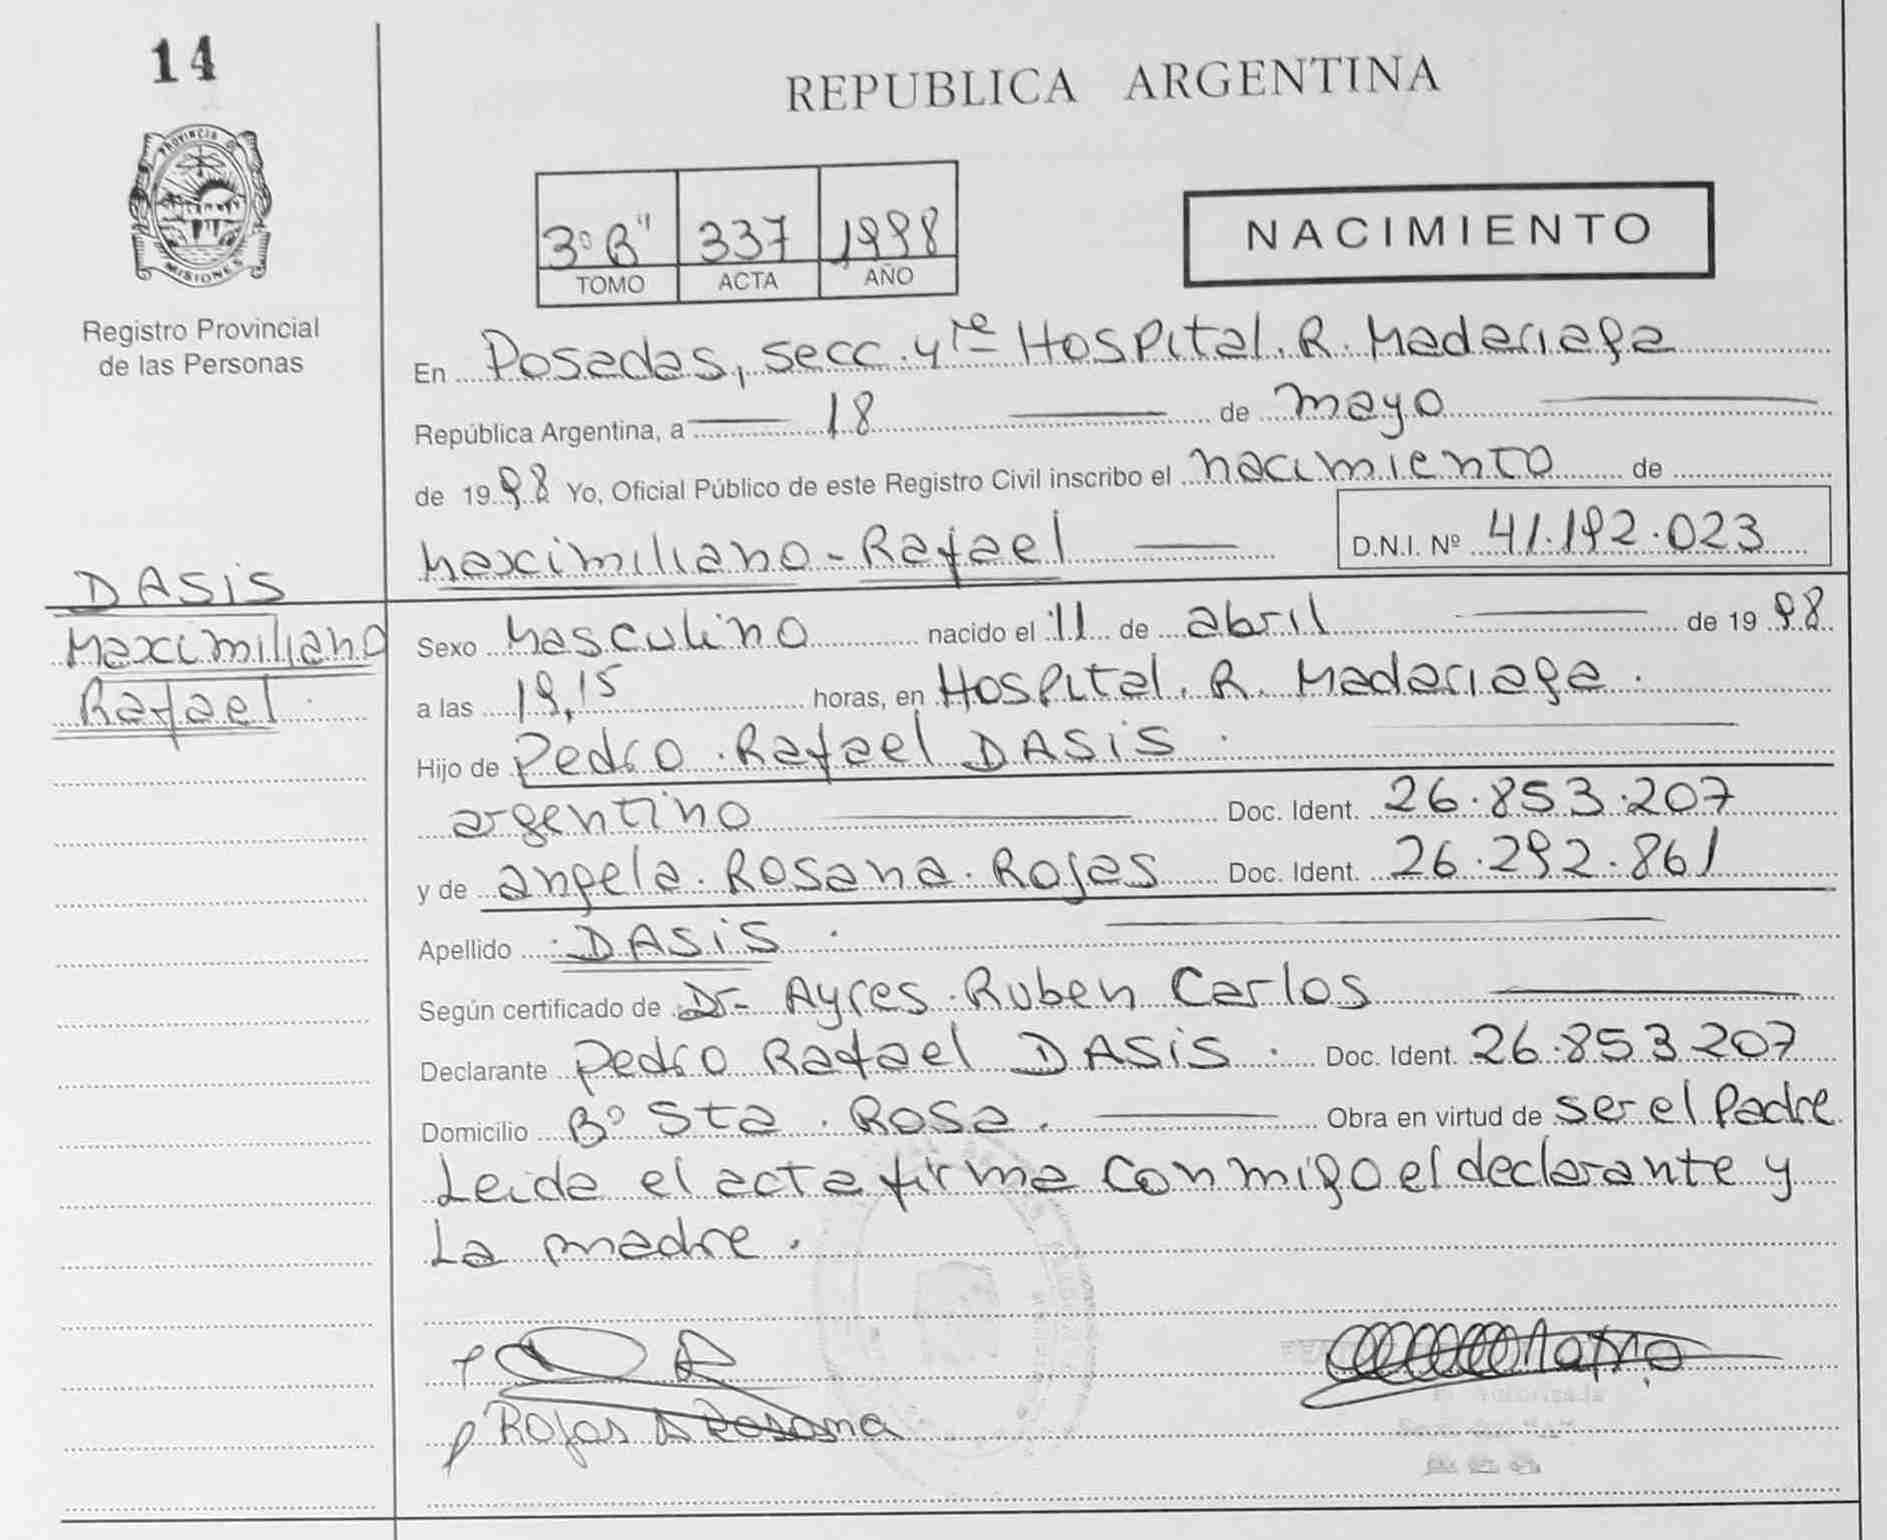 14
REPUBLICA ARGENTINA
PROVINCIA D
MISIONES
Registro Provincial
de las Personas
3º B" 337 1998
TOMO ACTA AÑO
NACIMIENTO
En Posadas, secc. 4ta Hospital. R. Madariaga
República Argentina, a 18 de mayo
de 1998 Yo, Oficial Público de este Registro Civil inscribo el nacimiento de
Maximiliano - Rafael D.N.I. Nº 41.192.023
DASiS
Maximiliano
Rafael.
Sexo Masculino nacido el 11 de abril de 1998
a las 19,15 horas, en Hospital. R. Madariaga.
Hijo de Pedro. Rafael DASiS.
argentino Doc. Ident. 26.853.207
y de angela. Rosana. Rojas Doc. Ident. 26.292.861
Apellido DASiS.
Según certificado de Dr- Ayres. Ruben Carlos
Declarante Pedro Rafael DASiS. Doc. Ident. 26.853 207
Domicilio Bº Sta. Rosa. Obra en virtud de ser el Padre
Leida el acta firma conmigo el declarante y
La madre.
Rojas A Rosana